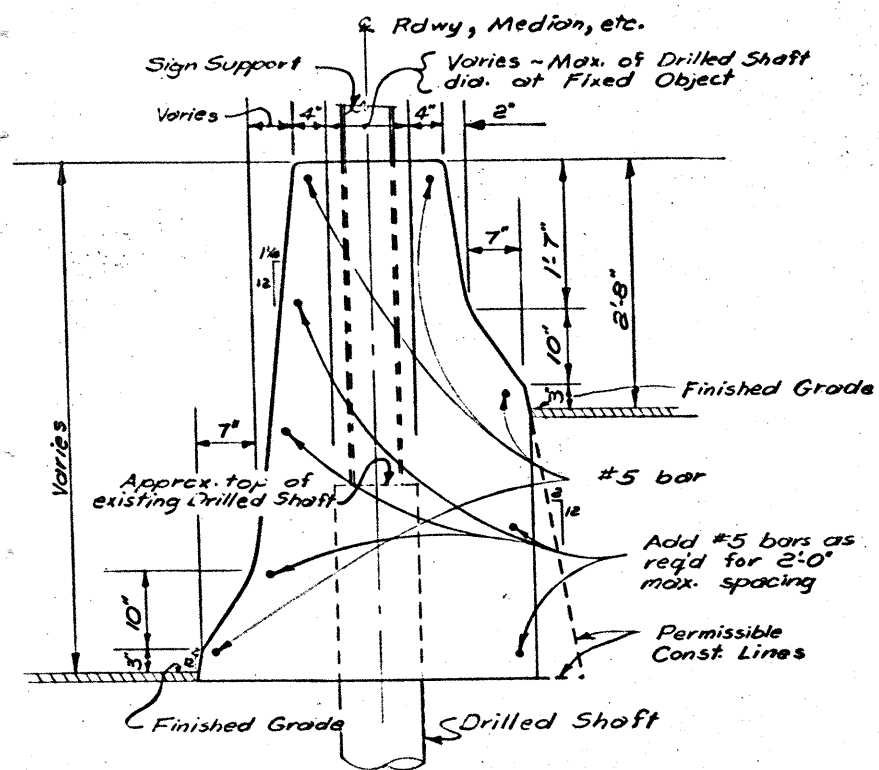 ℄ Rdwy, Median, etc.
Sign Support
Varies ~ Max. of Drilled Shaft
dia. at Fixed Object
Varies
4"
4"
2"
7"
1'-7"
2'-8"
1¼
12
10"
3"
Finished Grade
7"
Varies
Approx. top of
existing Drilled Shaft
#5 bar
2
12
Add #5 bars as
req'd for 2'-0"
max. spacing
10"
3"
Permissible
Const. Lines
Finished Grade
Drilled Shaft